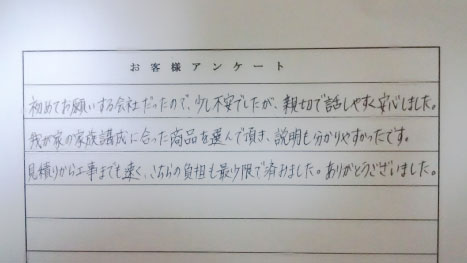 お客様アンケート
初めてお願いする会社だったので、少し不安でしたが、親切で話しやすく安心しました。
我が家の家族構成に合った商品を選んで頂き、説明も分かりやすかったです。
見積りから工事までも速く、こちらの負担も最少限で済みました。ありがとうございました。